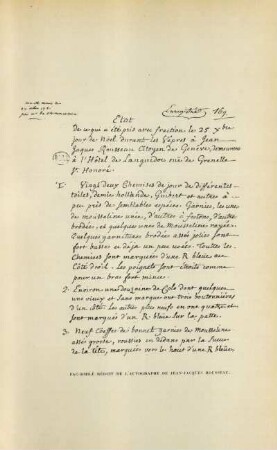 Enregistré 169
Etat
de ce qui a été pris avec fractions le 25 Xbre
jour de Noël durant les Vepres à Jean
Jaques Rousseau Citoyen de Genève, demeurant
à l'Hôtel du Languedoc rue de Grenelle
St. Honoré
1. Vingt deux Chemises de jour de différentes
toiles, demie hollande, Guibert et autres à
peu près de semblables espèces. Garnies, les unes
de mousseline unie, d'autres à festons, d'autres
brodées, et quelques unes de Mousseline rayée.
Quelques garnitures brodées assés jolies sont
fort basses et déja un peu usées. Toutes les
Chemises sont marquées d'une R bleue au
Côté droit. Les poignets sont étroits comme
pour un bras fort mince.
2. Environ une douzaine de Cols dont quelques
uns vieux et sans marque ont trois boutonnières
d'un côté. Les autres plus neufs en ont quatre, et
sont marqués d'un R bleue sur la patte.
3. Neuf Coeffes de bonnet garnies de Mousseline
assés grosse, cousues en dedans par la
de la tête, marquées vers le haut d'une R bleue.
FAC-SIMILÉ RÉDUIT DE L'AUTOGRAPHE DE JEAN-JACQUES ROUSSEAU.